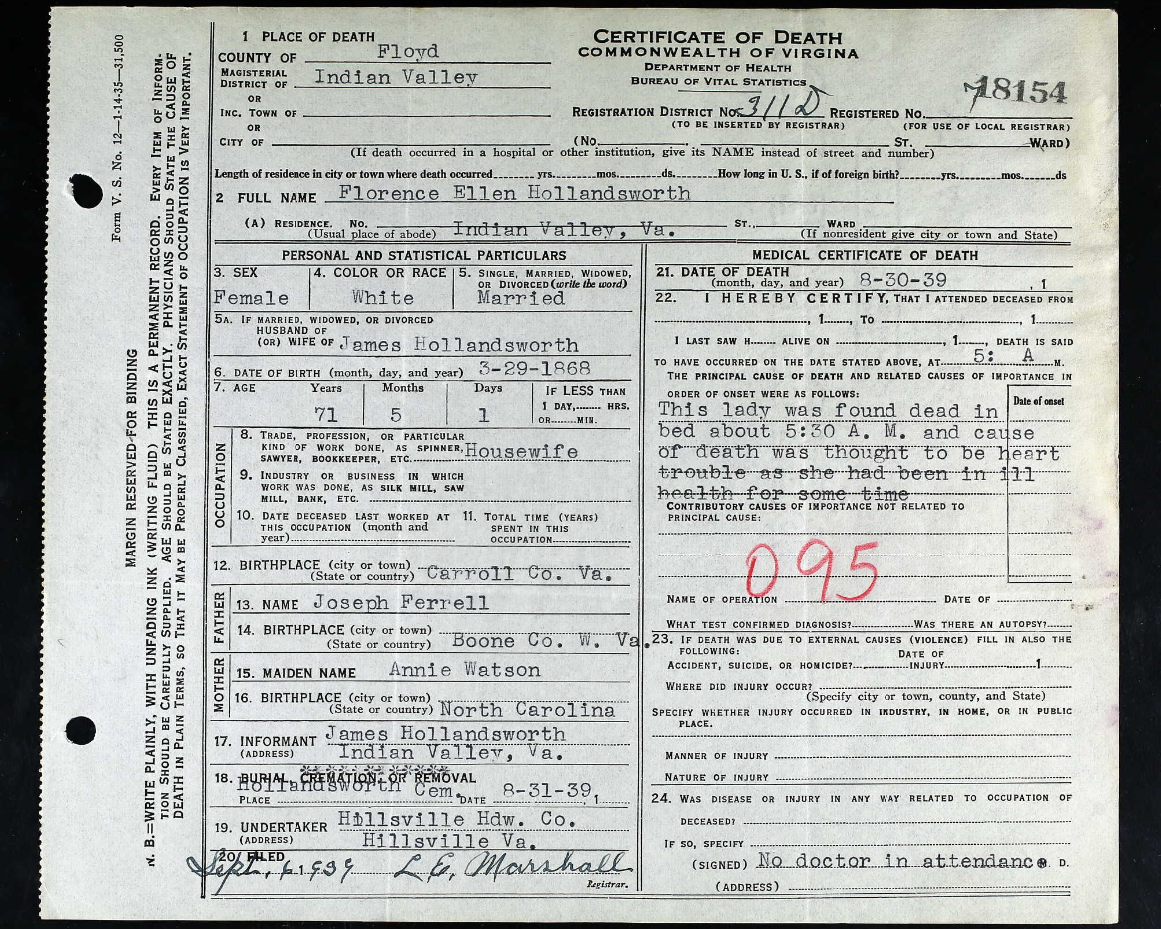 Form V. S. No. 12—1-14-35—31,500
MARGIN RESERVED FOR BINDING
N. B.—WRITE PLAINLY, WITH UNFADING INK (WRITING FLUID) THIS IS A PERMANENT RECORD. EVERY ITEM OF INFORM-
TION SHOULD BE CAREFULLY SUPPLIED. AGE SHOULD BE STATED EXACTLY. PHYSICIANS SHOULD STATE THE CAUSE OF
DEATH IN PLAIN TERMS, SO THAT IT MAY BE PROPERLY CLASSIFIED, EXACT STATEMENT OF OCCUPATION IS VERY IMPORTANT.
CERTIFICATE OF DEATH
COMMONWEALTH OF VIRGINIA
DEPARTMENT OF HEALTH
BUREAU OF VITAL STATISTICS
1 PLACE OF DEATH
COUNTY OF Floyd
MAGISTERIAL DISTRICT OF Indian Valley
OR
INC. TOWN OF
OR
CITY OF (No. ST. WARD)
18154
REGISTRATION DISTRICT No. 311D REGISTERED No.
(TO BE INSERTED BY REGISTRAR) (FOR USE OF LOCAL REGISTRAR)
(If death occurred in a hospital or other institution, give its NAME instead of street and number)
Length of residence in city or town where death occurred yrs. mos. ds. How long in U. S., if of foreign birth? yrs. mos. ds
2 FULL NAME Florence Ellen Hollandsworth
(A) RESIDENCE. No. Indian Valley, Va. ST., WARD
(Usual place of abode) (If nonresident give city or town and State)
PERSONAL AND STATISTICAL PARTICULARS
3. SEX Female
4. COLOR OR RACE White
5. SINGLE, MARRIED, WIDOWED, OR DIVORCED (write the word) Married
5A. IF MARRIED, WIDOWED, OR DIVORCED
HUSBAND OF
(OR) WIFE OF James Hollandsworth
6. DATE OF BIRTH (month, day, and year) 3-29-1868
7. AGE Years Months Days IF LESS THAN
71 5 1 1 DAY, HRS.
OR MIN.
OCCUPATION
8. TRADE, PROFESSION, OR PARTICULAR
KIND OF WORK DONE, AS SPINNER, Housewife
SAWYER, BOOKKEEPER, ETC.
9. INDUSTRY OR BUSINESS IN WHICH
WORK WAS DONE, AS SILK MILL, SAW
MILL, BANK, ETC.
10. DATE DECEASED LAST WORKED AT THIS OCCUPATION (month and year)
11. TOTAL TIME (YEARS) SPENT IN THIS OCCUPATION
12. BIRTHPLACE (city or town)
(State or country) Carroll Co. Va.
FATHER
13. NAME Joseph Ferrell
14. BIRTHPLACE (city or town)
(State or country) Boone Co. W. Va.
MOTHER
15. MAIDEN NAME Annie Watson
16. BIRTHPLACE (city or town)
(State or country) North Carolina
17. INFORMANT James Hollandsworth
(ADDRESS) Indian Valley, Va.
18. BURIAL, CREMATION, OR REMOVAL
Hollandsworth Cem.
PLACE DATE 8-31-39, 1
19. UNDERTAKER Hillsville Hdw. Co.
(ADDRESS) Hillsville Va.
20. FILED
Sept. 6, 1939 L. E. Marshall
Registrar.
MEDICAL CERTIFICATE OF DEATH
21. DATE OF DEATH
(month, day, and year) 8-30-39 , 1
22. I HEREBY CERTIFY, THAT I ATTENDED DECEASED FROM
, 1 , TO , 1
I LAST SAW H ALIVE ON , 1 , DEATH IS SAID
TO HAVE OCCURRED ON THE DATE STATED ABOVE, AT 5: A M.
THE PRINCIPAL CAUSE OF DEATH AND RELATED CAUSES OF IMPORTANCE IN
ORDER OF ONSET WERE AS FOLLOWS: Date of onset
This lady was found dead in
bed about 5:30 A. M. and cause
of death was thought to be heart
trouble as she had been in ill
health for some time
CONTRIBUTORY CAUSES OF IMPORTANCE NOT RELATED TO
PRINCIPAL CAUSE:
095
NAME OF OPERATION DATE OF
WHAT TEST CONFIRMED DIAGNOSIS? WAS THERE AN AUTOPSY?
23. IF DEATH WAS DUE TO EXTERNAL CAUSES (VIOLENCE) FILL IN ALSO THE
FOLLOWING: DATE OF
ACCIDENT, SUICIDE, OR HOMICIDE? INJURY 1
WHERE DID INJURY OCCUR?
(Specify city or town, county, and State)
SPECIFY WHETHER INJURY OCCURRED IN INDUSTRY, IN HOME, OR IN PUBLIC
PLACE.
MANNER OF INJURY
NATURE OF INJURY
24. WAS DISEASE OR INJURY IN ANY WAY RELATED TO OCCUPATION OF
DECEASED?
IF SO, SPECIFY
(SIGNED) No doctor in attendance D.
(ADDRESS)